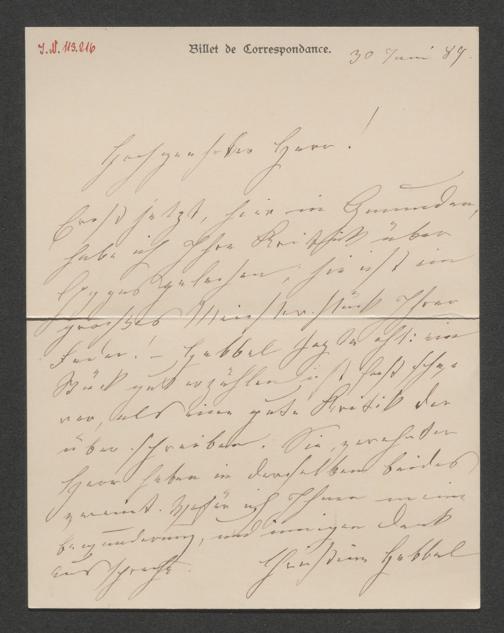 J.N. 113.216
Billet de Correspondance.
30 Juni 89.
Hochgeehrter Herr!
Erst jetzt, hier in Gmunden,
habe ich Ihre Kritik über
Gyges gelesen, sie ist ein
grosses Meisterstück Ihrer
Feder! – Hebbel sagte oft: ein
Stück gut erzählen ist fast schwe
rer, als eine gute Kritik da
über schreiben. Sie, verehrter
Herr haben in derselben beides
vereint. Wofür ich Ihnen meine
bewunderung, und innigen Dank
ausspreche. Christine Hebbel